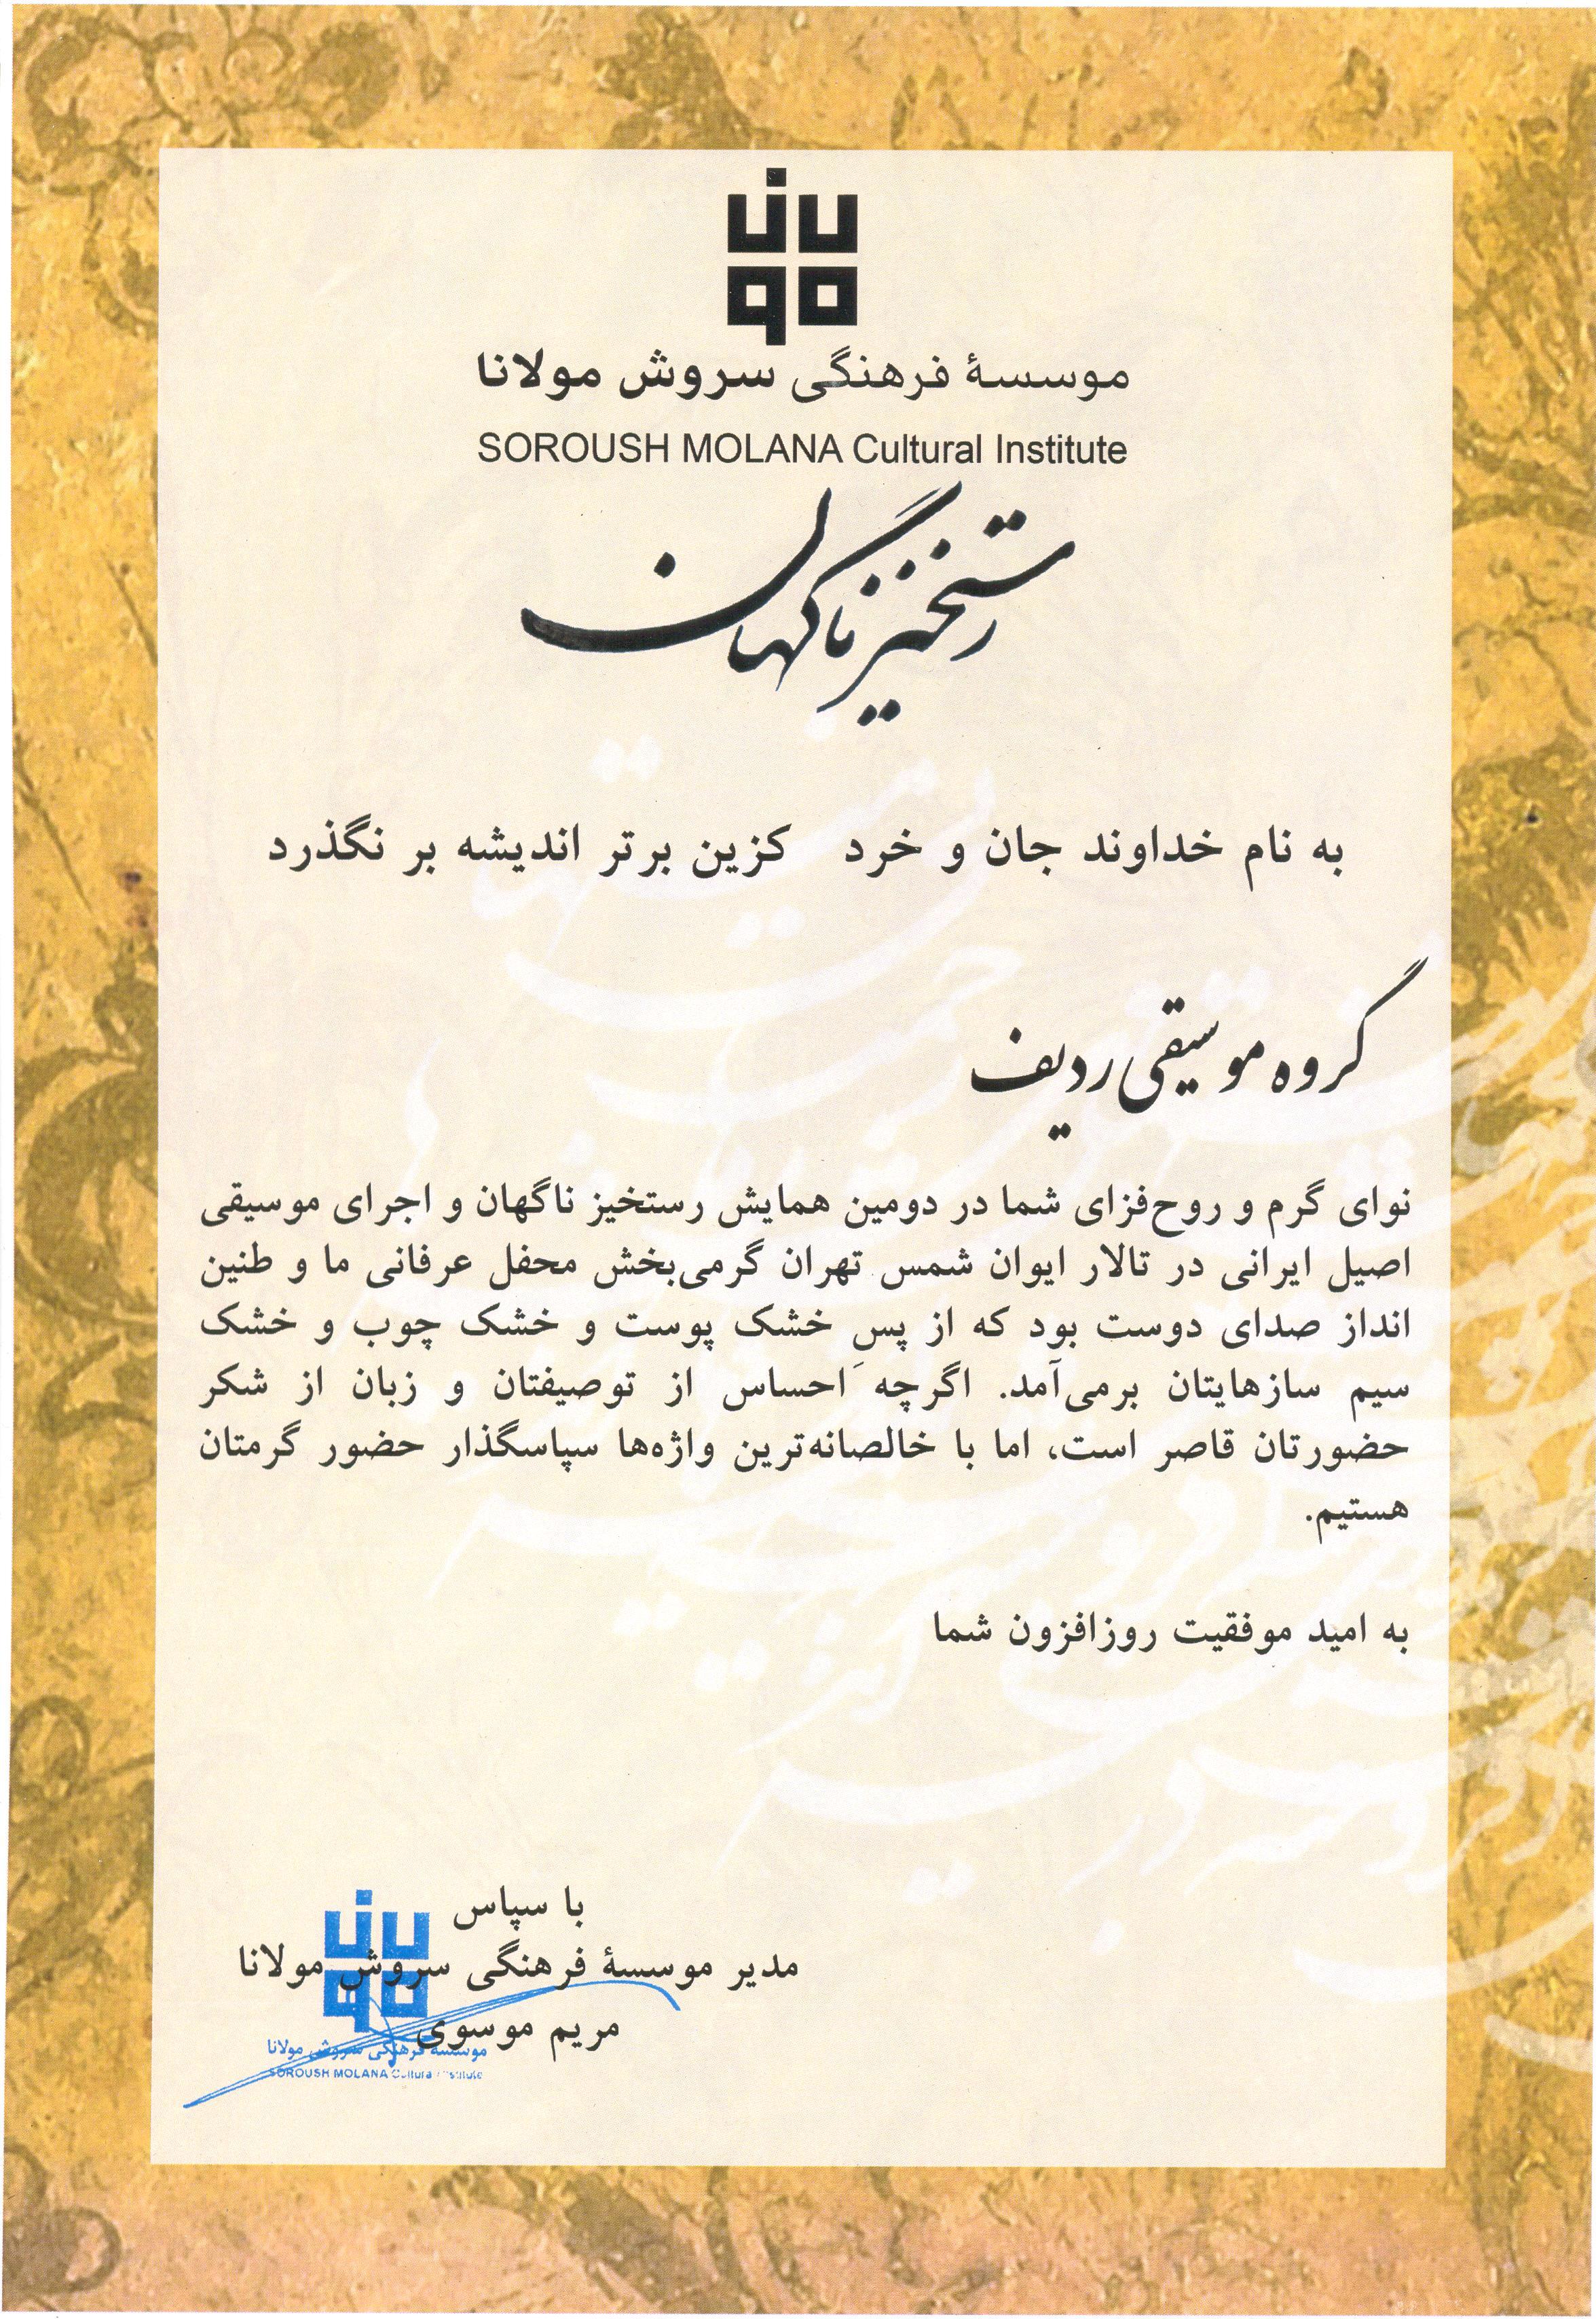 موسسهٔ فرهنگی سروش مولانا
SOROUSH MOLANA Cultural Institute
رستخیز ناگهان
به نام خداوند جان و خرد کزین برتر اندیشه بر نگذرد
گروه موسیقی ردیف
نوای گرم و روح‌فزای شما در دومین همایش رستخیز ناگهان و اجرای موسیقی
اصیل ایرانی در تالار ایوان شمس تهران گرمی‌بخش محفل عرفانی ما و طنین
انداز صدای دوست بود که از پسِ خشک پوست و خشک چوب و خشک
سیم سازهایتان برمی‌آمد. اگرچه احساس از توصیفتان و زبان از شکر
حضورتان قاصر است، اما با خالصانه‌ترین واژه‌ها سپاسگذار حضور گرمتان
هستیم.
به امید موفقیت روزافزون شما
با سپاس
مدیر موسسهٔ فرهنگی سروش مولانا
مریم موسوی
موسسهٔ فرهنگی سروش مولانا
SOROUSH MOLANA Cultural Institute